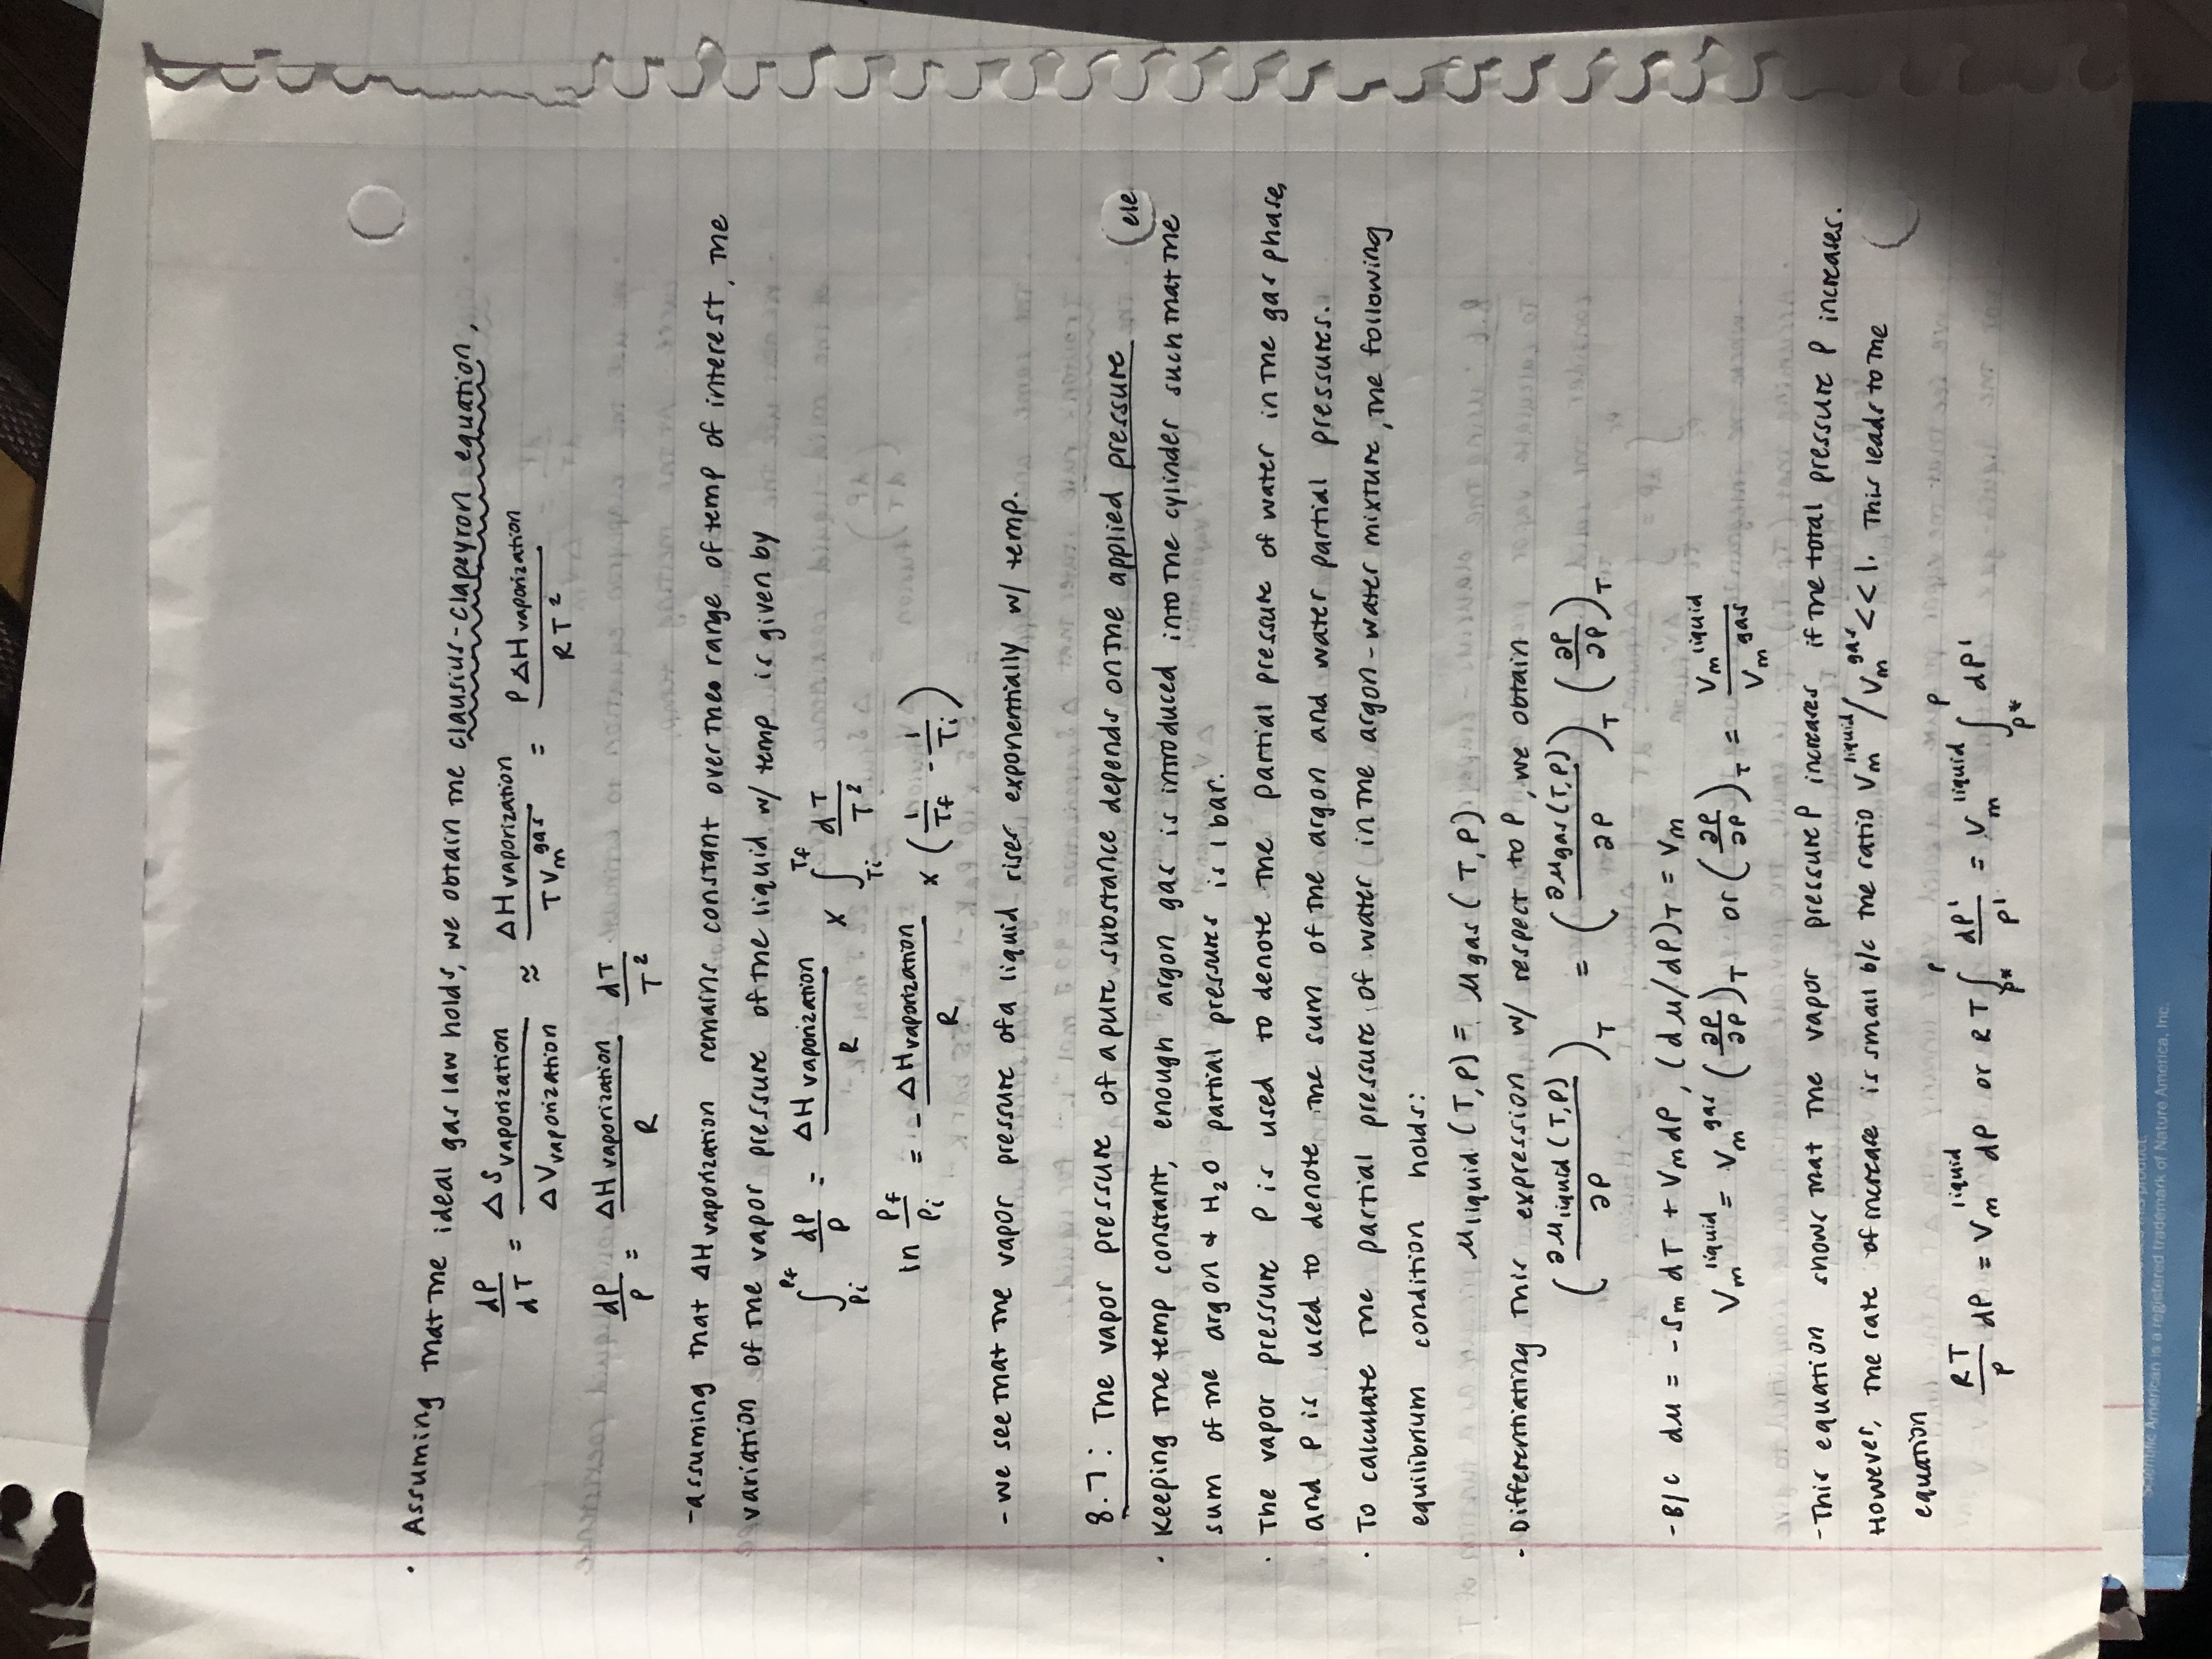 · Assuming that the ideal gas law holds, we obtain the clausius-clapeyron equation,
dP/dT = ΔS vaporization / ΔV vaporization ≈ ΔH vaporization / T Vm^gas = P ΔH vaporization / RT²
dP/P = ΔH vaporization / R dT/T²
-assuming that ΔH vaporization remains constant over the range of temp of interest, the
variation of the vapor pressure of the liquid w/ temp is given by
∫_Pi^Pf dP/P = ΔH vaporization / R × ∫_Ti^Tf dT/T²
ln Pf/Pi = - ΔH vaporization / R × (1/Tf - 1/Ti)
- we see that the vapor pressure of a liquid rises exponentially w/ temp.
8.7: The vapor pressure of a pure substance depends on the applied pressure
· Keeping the temp constant, enough argon gas is introduced into the cylinder such that the
sum of the argon & H₂O partial pressures is 1 bar.
· The vapor pressure P is used to denote the partial pressure of water in the gas phase,
and P is used to denote the sum of the argon and water partial pressures.
· To calculate the partial pressure of water in the argon-water mixture, the following
equilibrium condition holds:
μliquid (T,P) = μgas (T,P)
· Differentiating this expression w/ respect to P, we obtain
(∂μliquid (T,P) / ∂P)_T = (∂μgas (T,P) / ∂P)_T (∂P/∂P)_T
-B/C dμ = -Sm dT + Vm dP, (dμ/dP)_T = Vm
Vm^liquid = Vm^gas (∂P/∂P)_T or (∂P/∂P)_T = Vm^liquid / Vm^gas
-This equation shows that the vapor pressure P increases if the total pressure P increases.
However, the rate of increase is small b/c the ratio Vm^liquid / Vm^gas << 1. This leads to the
equation
RT/P dP = Vm^liquid dP or RT ∫_P*^P dP'/P' = Vm^liquid ∫_P*^P dP'
Scientific American is a registered trademark of Nature America, Inc.